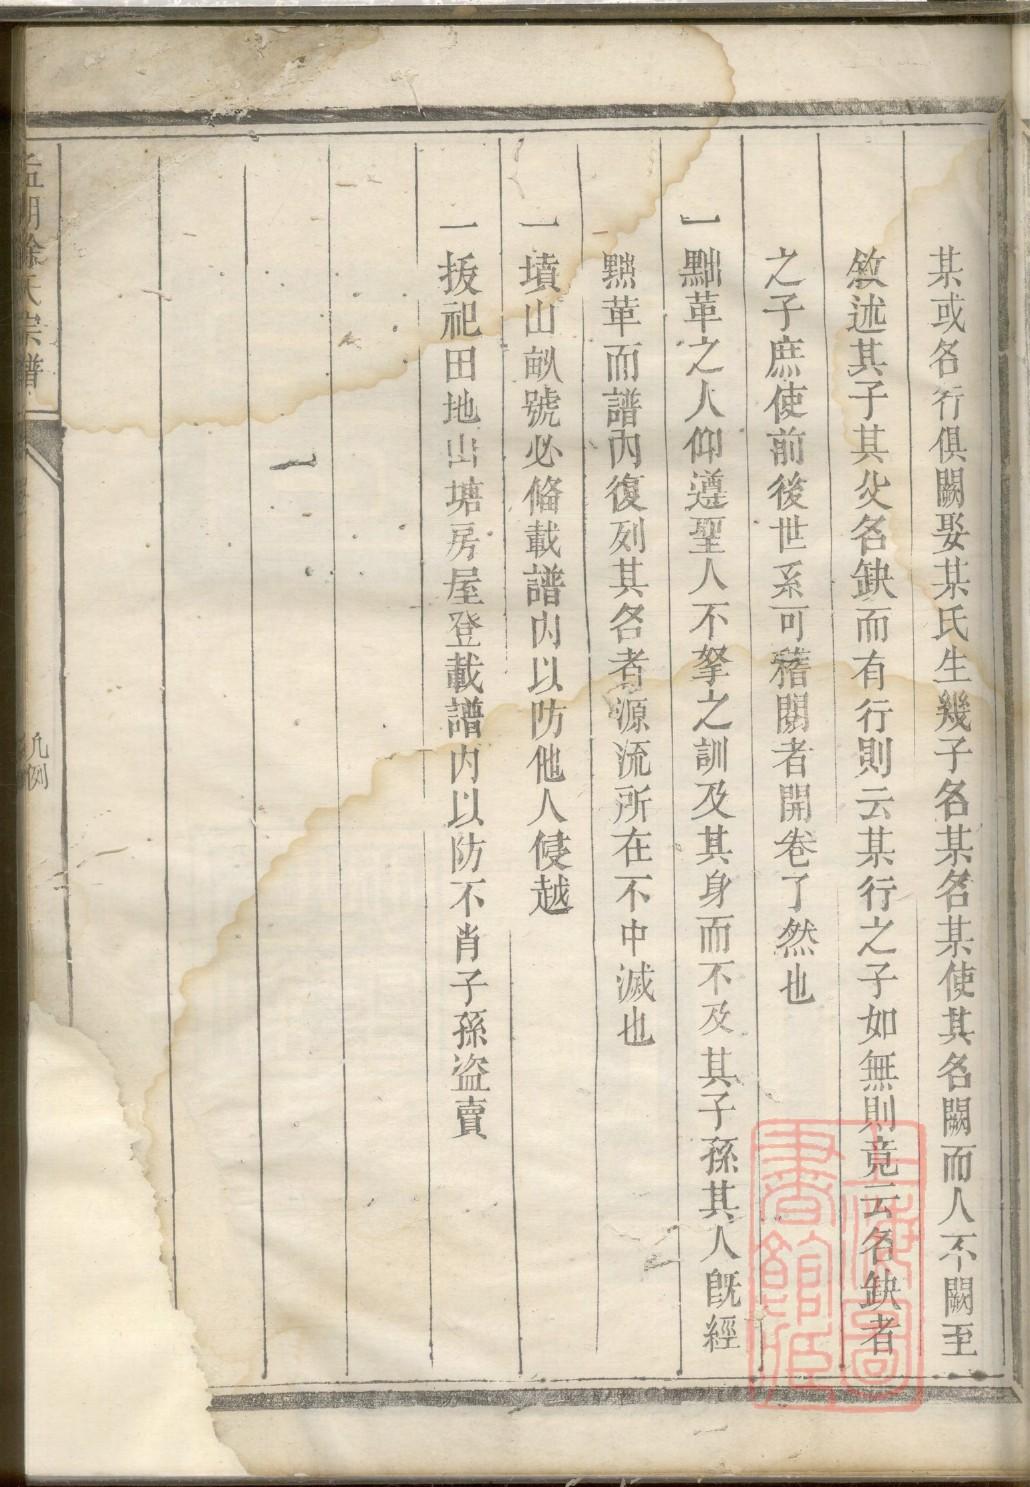 某或名行俱闕娶某氏生幾子名某名某使其名闕而人不闕至
敘述其子其父名缺而有行則云某行之子如無則竟云名缺者
之子庶使前後世系可稽閱者開卷了然也
一黜革之人仰遵聖人不孥之訓及其身而不及其子孫其人旣經
黜革而譜內復列其名者源流所在不中滅也
一墳山畝號必偹載譜内以防他人侵越
一拨祀田地山塘房屋登載譜内以防不肖子孫盜賣
徐氏宗譜
凡例
上海圖
書館藏